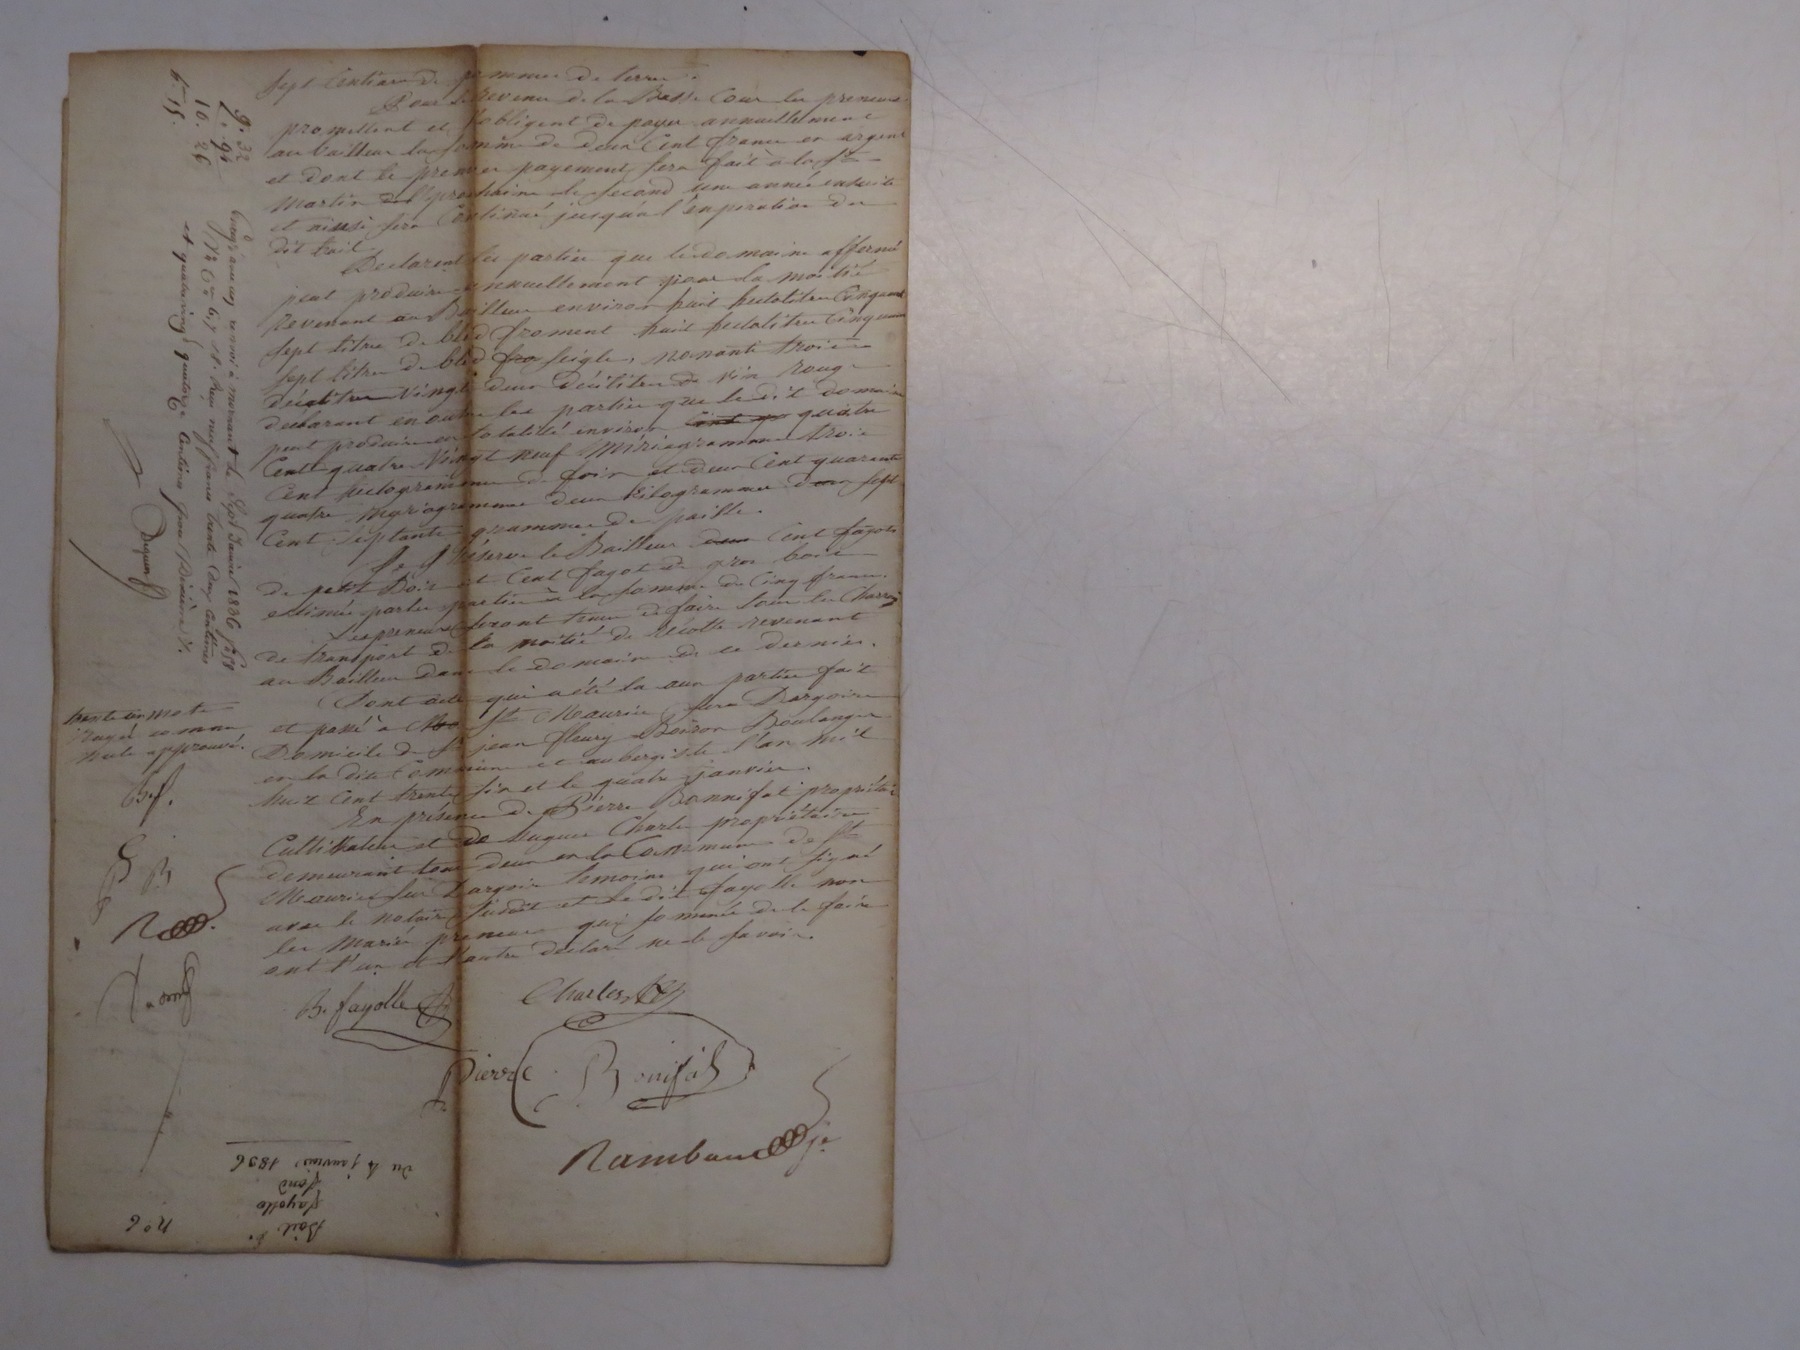 sept Centiare de pommes de terre.
Pour le Revenu de la Basse Cour les preneurs
promettent et s'obligent de payer annuellement
au Bailleur la somme de deux Cent francs en argent
et dont le premier payement sera fait à la St
Martin prochaine le second une année ensuite
et ainsi sera Continué jusqu'à l'expiration du
dit bail
Declarent les parties que le domaine affermé
peut produire annuellement pour la moitié
Revenant au Bailleur environ huit hectolitres Cinquante
sept litres de bled froment huit hectolitres Cinquante
sept litres de bled fro seigle, nonante trois
décalitres vingt deux décilitres de vin rouge
declarant en outre les parties que le dit domaine
peut produire en totalité environ quatre
Cent quatre Vingt neuf Miriagrammes trois
Cent hectogrammes de foin et deux Cent quarante
quatre Myriagrammes deux kilogrammes deux sept
Cent septante grammes de paille.
Se Réserve le Bailleur deux Cent fagots
de petit Bois et Cent fagot de gros bois
estimés par les parties à la somme de Cinq francs.
Les preneurs seront tenus de faire tous les Charrois
de transport de la moitié de récolte revenant
au Bailleur dans le domaine de ce dernier.
Dont acte qui a été lu aux parties fait
et passé à Mo St Maurice sur Dargoire
Domicile de Sr jean fleury Boiron Boulanger
en la dite Commune et aubergiste l'an mil
huit Cent trente six et le quatre janvier.
En présence de Pierre Bonnifat propriétaire
Cultivateur et de hugues Charles propriétaire
demeurant tous deux en la Commune de St
Maurice sur Dargoire temoins qui ont signé
avec le notaire susdit et le dit fayolle non
les Mariés preneurs qui sommés de le faire
ont l'un et l'autre declaré ne le savoir.
B. fayolle
Charles
Pierre Bonifat
Rambaud jne
trente un mots
rayés comme
nuls approuvés.
B. f.
P B
R
9. 32
2. 94
10. 26
f. 15.
Enregistré avec un renvoi à mornant le Sept Janvier 1836 fo 58
Vo Ces 6, 7 et 8. Reçu neuf francs trente deux centimes
et quatre vingt quatorze Centimes pour Dixième
Du 4 janvier 1836
Bail
fayolle
fond
no 6